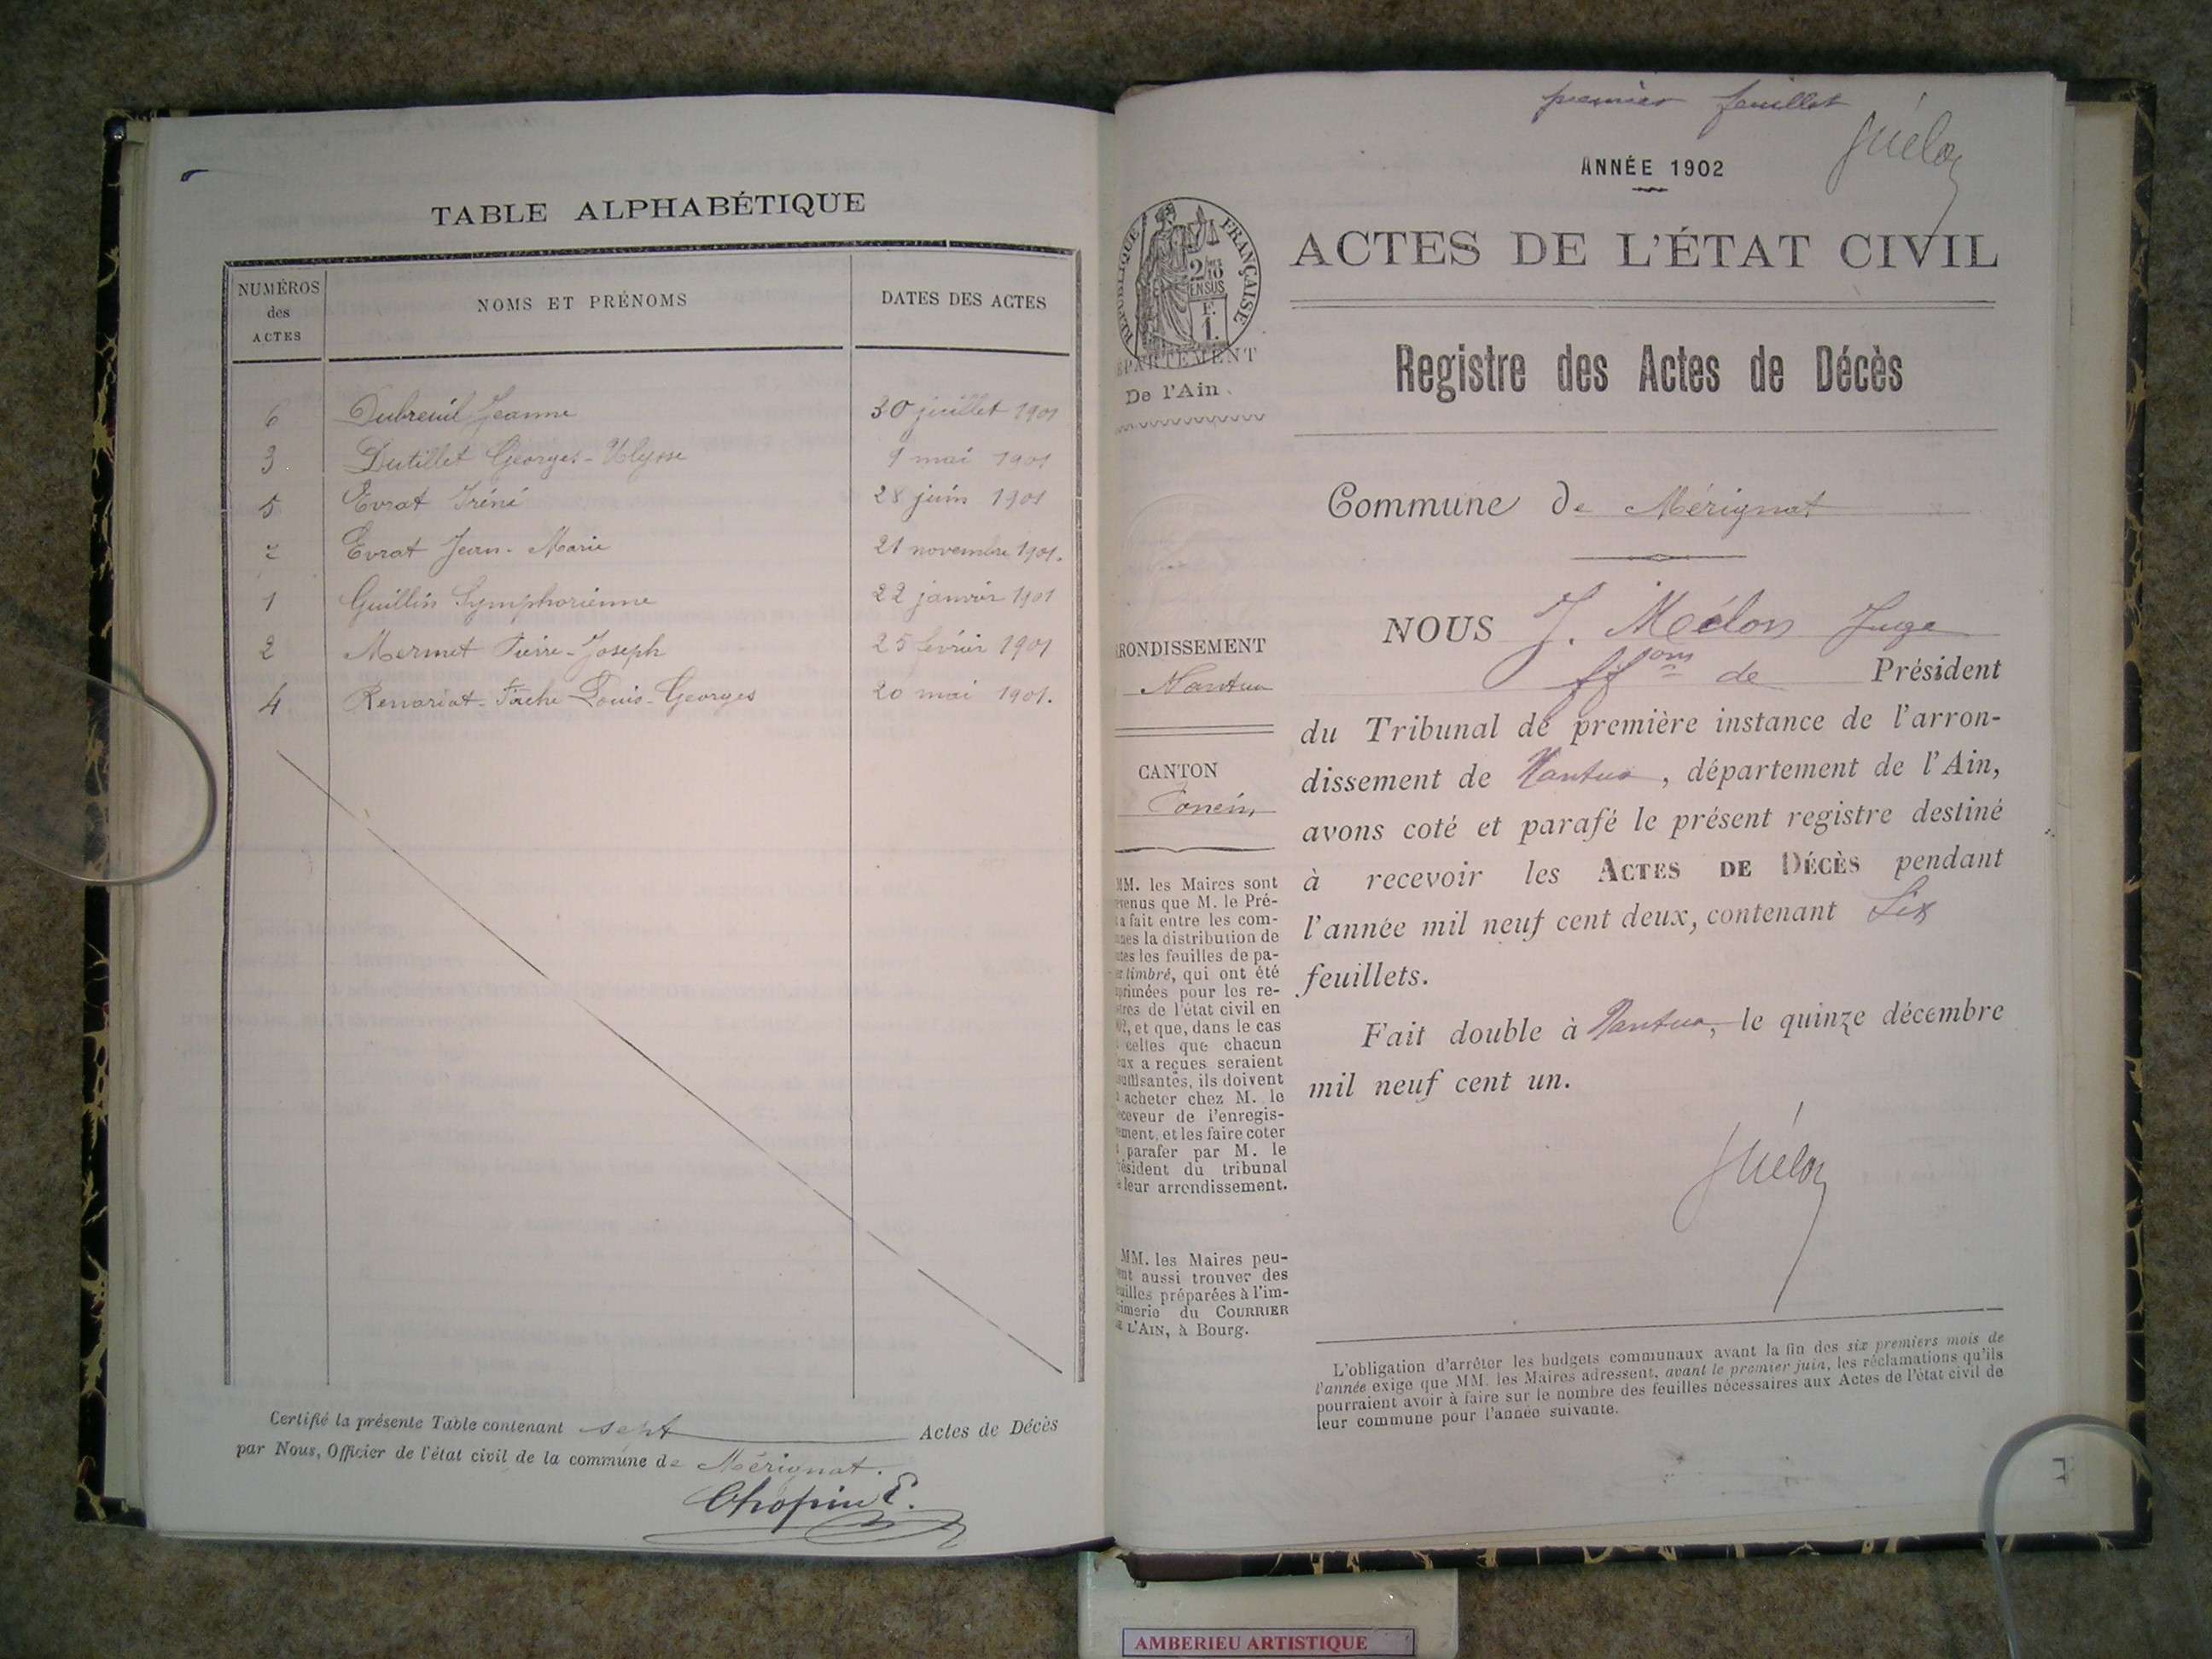 TABLE ALPHABÉTIQUE
NUMÉROS des ACTES
NOMS ET PRÉNOMS
DATES DES ACTES
6 Dubreuil Jeanne 30 juillet 1901
3 Dutillet Georges-Ulysse 9 mai 1901
5 Evrat Iréné 28 juin 1901
7 Evrat Jean-Marie 21 novembre 1901.
1 Guillin Symphorienne 22 janvier 1901
2 Mermet Pierre-Joseph 25 février 1901
4 Louis-Georges 20 mai 1901.
Certifié la présente Table contenant sept Actes de Décès
par Nous, Officier de l'état civil de la commune de Mérignat.
Chopin E.
premier feuillet
ANNÉE 1902
ACTES DE L'ÉTAT CIVIL
Registre des Actes de Décès
RÉPUBLIQUE FRANÇAISE
2/10 EN SUS
F. 1.
DÉPARTEMENT
De l'Ain.
Commune de Mérignat
ARRONDISSEMENT
Nantua
CANTON
Poncin
NOUS J. Juge
ff^ons de Président
du Tribunal de première instance de l'arron-
dissement de Nantua, département de l'Ain,
avons coté et parafé le présent registre destiné
à recevoir les ACTES DE DÉCÈS pendant
l'année mil neuf cent deux, contenant Six
feuillets.
Fait double à Nantua, le quinze décembre
mil neuf cent un.
MM. les Maires sont
prévenus que M. le Pré-
fet a fait entre les com-
munes la distribution de
toutes les feuilles de pa-
pier timbré, qui ont été
imprimées pour les re-
gistres de l'état civil en
1902, et que, dans le cas
où celles que chacun
d'eux a reçues seraient
insuffisantes, ils doivent
en acheter chez M. le
Receveur de l'enregis-
trement, et les faire coter
et parafer par M. le
Président du tribunal
de leur arrondissement.
MM. les Maires peu-
vent aussi trouver des
feuilles préparées à l'im-
primerie du COURRIER
DE L'AIN, à Bourg.
L'obligation d'arrêter les budgets communaux avant la fin des six premiers mois de
l'année exige que MM. les Maires adressent, avant le premier juin, les réclamations qu'ils
pourraient avoir à faire sur le nombre des feuilles nécessaires aux Actes de l'état civil de
leur commune pour l'année suivante.
AMBERIEU ARTISTIQUE